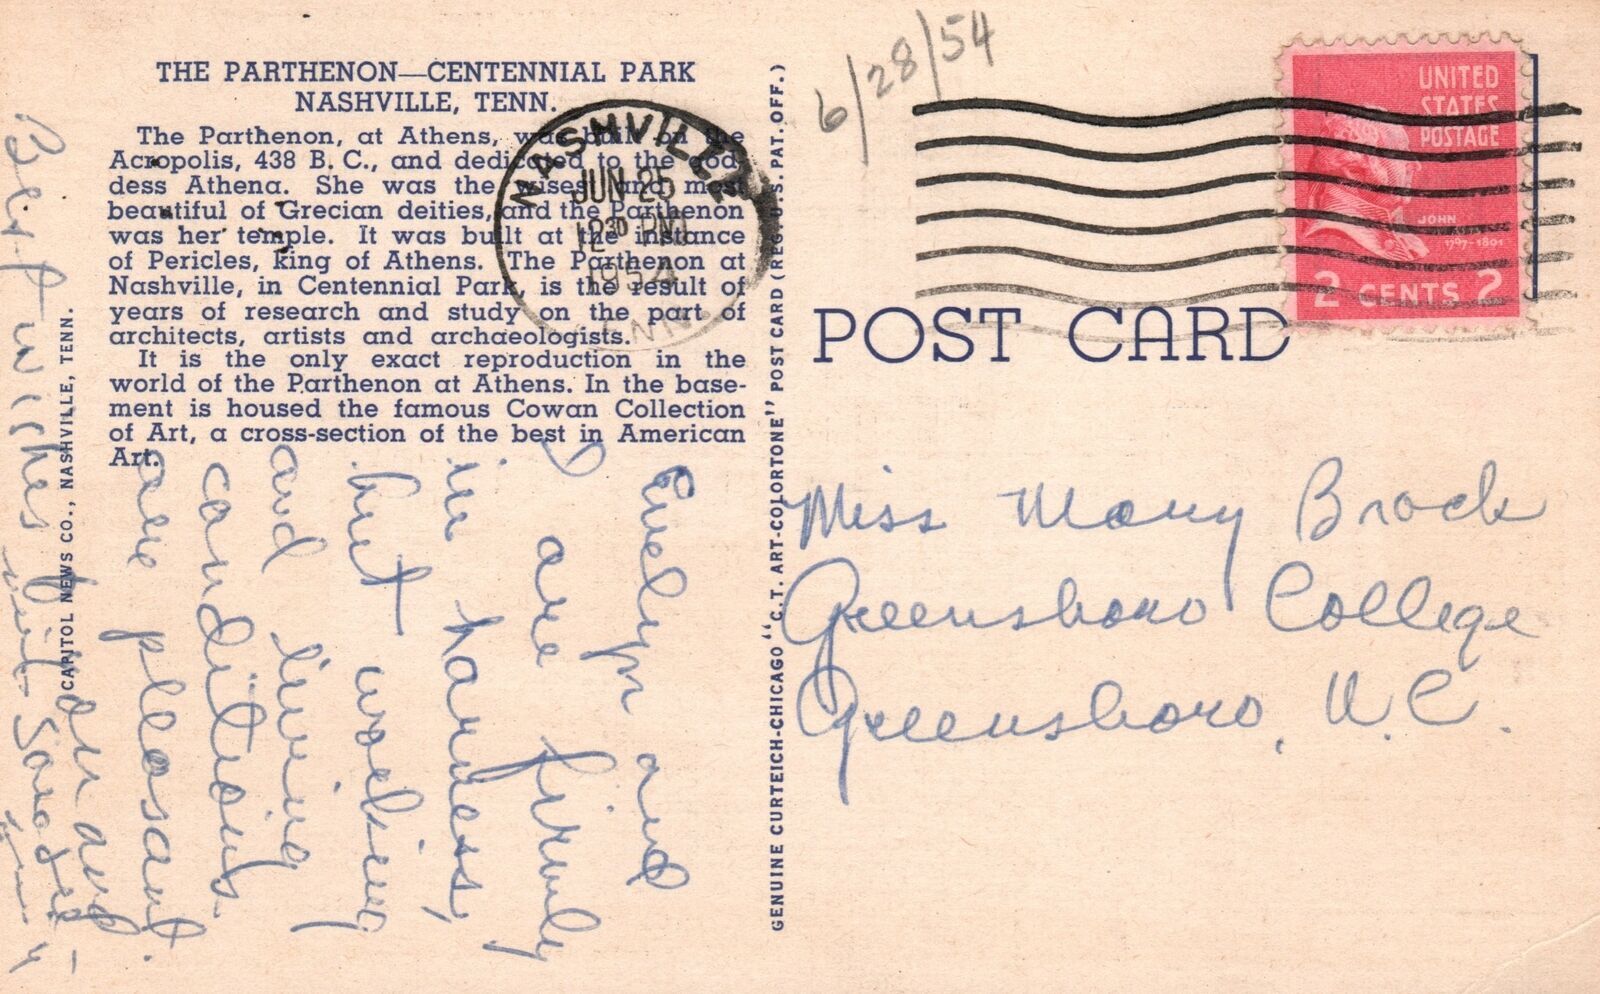 THE PARTHENON—CENTENNIAL PARK
NASHVILLE, TENN.
The Parthenon, at Athens, was built on the
Acropolis, 438 B. C., and dedicated to the god-
dess Athena. She was the wisest and most
beautiful of Grecian deities, and the Parthenon
was her temple. It was built at the instance
of Pericles, king of Athens. The Parthenon at
Nashville, in Centennial Park, is the result of
years of research and study on the part of
architects, artists and archaeologists.
It is the only exact reproduction in the
world of the Parthenon at Athens. In the base-
ment is housed the famous Cowan Collection
of Art, a cross-section of the best in American
Art.
CAPITOL NEWS CO., NASHVILLE, TENN.
Evelyn and
I are firmly
in harness,
but working
and living
conditions
are pleasant.
Best wishes
GENUINE CURTEICH-CHICAGO "C.T. ART-COLORTONE" POST CARD (REG. U.S. PAT. OFF.)
6/28/54
NASHVILLE
JUN 25
12 30 PM
1954
TENN.
UNITED
STATES
POSTAGE
JOHN
1797-1801
2 CENTS 2
POST CARD
Miss Mary Brock
Greensboro College
Greensboro, N.C.